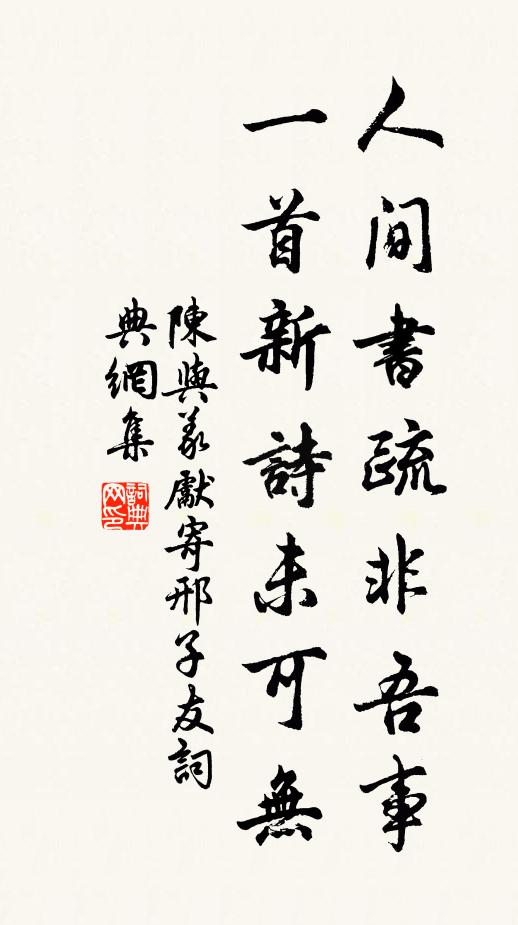 人间書疏非吾事
一首新詩未可無
陳與義獻寄邢子友詞
典網集
詞典
网印